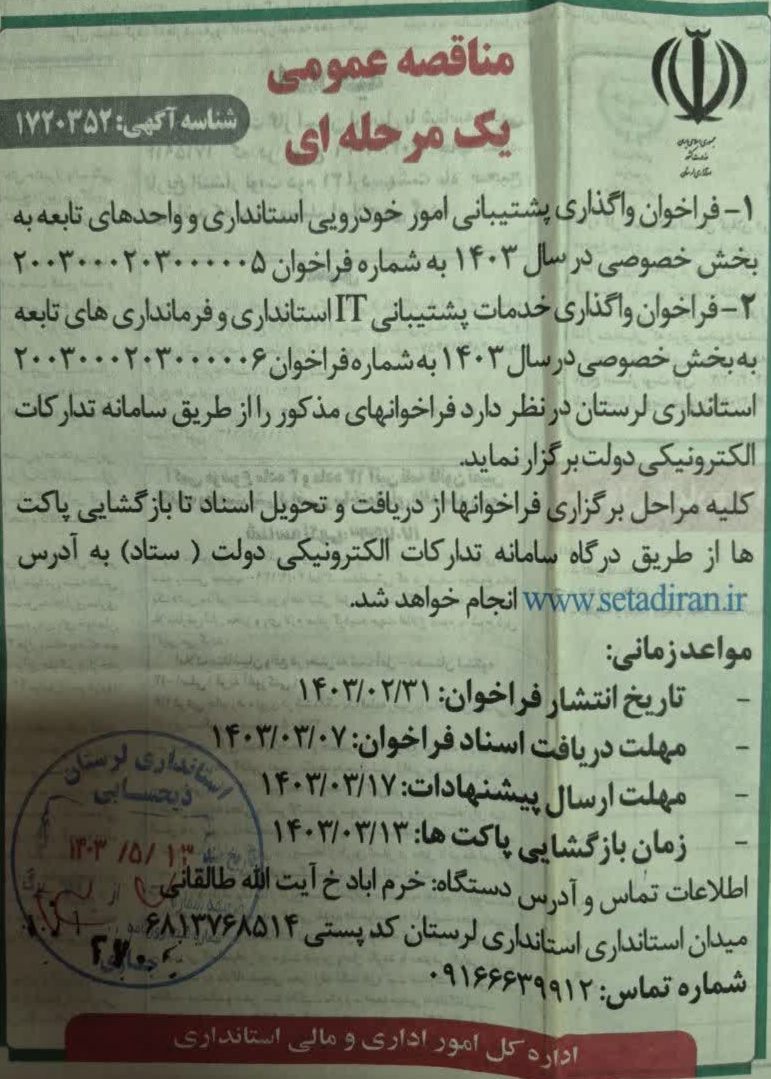 مناقصه عمومی
یک مرحله ای
شناسه آگهی: ۱۷۲۰۳۵۲
جمهوری اسلامی ایران
وزارت کشور
استانداری لرستان
۱- فراخوان واگذاری پشتیبانی امور خودرویی استانداری و واحدهای تابعه به
بخش خصوصی در سال ۱۴۰۳ به شماره فراخوان ۲۰۰۳۰۰۰۲۰۳۰۰۰۰۰۵
۲- فراخوان واگذاری خدمات پشتیبانی IT استانداری و فرمانداری های تابعه
به بخش خصوصی در سال ۱۴۰۳ به شماره فراخوان ۲۰۰۳۰۰۰۲۰۳۰۰۰۰۰۶
استانداری لرستان در نظر دارد فراخوانهای مذکور را از طریق سامانه تدارکات
الکترونیکی دولت برگزار نماید.
کلیه مراحل برگزاری فراخوانها از دریافت و تحویل اسناد تا بازگشایی پاکت
ها از طریق درگاه سامانه تدارکات الکترونیکی دولت ( ستاد) به آدرس
www.setadiran.ir انجام خواهد شد.
مواعد زمانی:
- تاریخ انتشار فراخوان: ۱۴۰۳/۰۲/۳۱
- مهلت دریافت اسناد فراخوان: ۱۴۰۳/۰۳/۰۷
- مهلت ارسال پیشنهادات: ۱۴۰۳/۰۳/۱۷
- زمان بازگشایی پاکت ها: ۱۴۰۳/۰۳/۱۳
اطلاعات تماس و آدرس دستگاه: خرم اباد خ آیت الله طالقانی
میدان استانداری استانداری لرستان کد پستی ۶۸۱۳۷۶۸۵۱۴
شماره تماس: ۰۹۱۶۶۶۳۹۹۱۲
استانداری لرستان
ذیحسابی
۱۴۰۳/۵/۱۳
اداره کل امور اداری و مالی استانداری